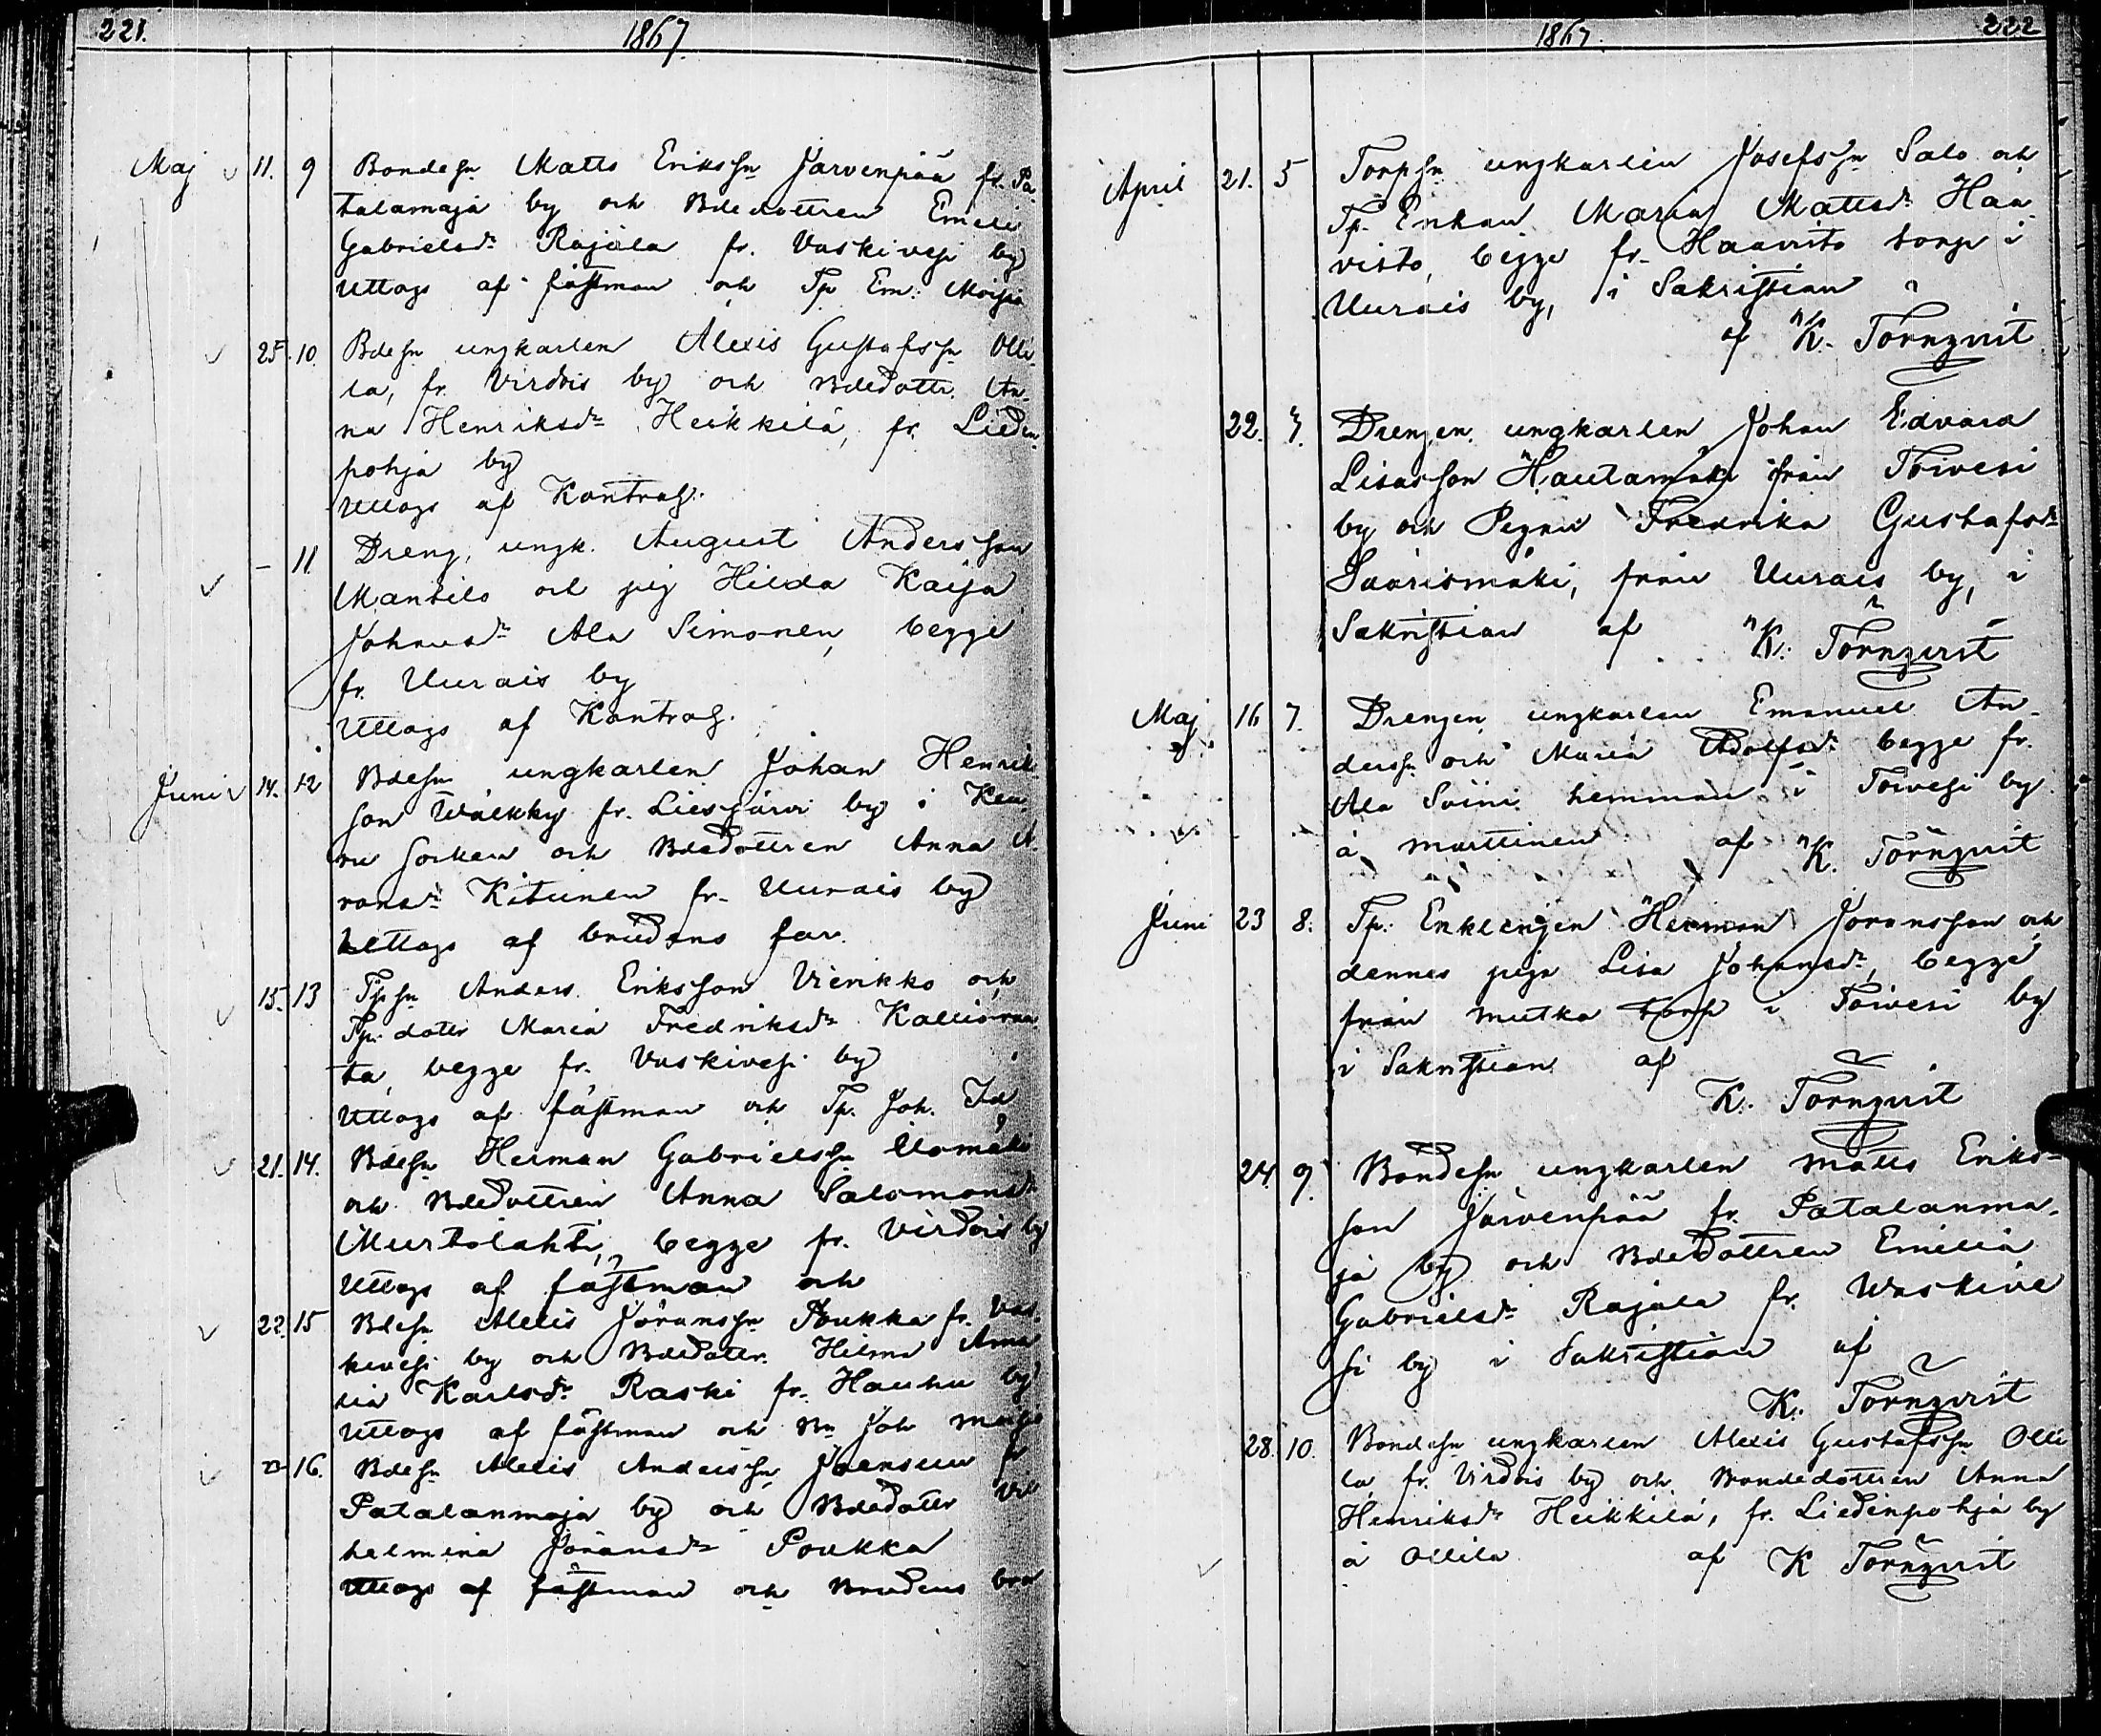 221.
1867.
Maj 11. 9 Bondesn Matts Erikssn Järvenpää fr. Pa
talamaja by och Bdedottren Emeli
Gabrielsdr Rajala fr. Vaskivesi by
Uttogs af fästman och Tp Em: Moisio
25. 10. Bdesn ungkarlen Alexis Gustafssn Olli
la, fr. Virdois by och Bdedottr. An
na Henriksdr Heikkilä, fr. Lieden
pohja by
Uttogs af Kontrah.
- 11 Dreng, ungk. August Andersson
Mantila och pig Hilda Kaisa
Johansdr Ala Simonen, begge
fr. Uurais by
Uttogs af Kontrah.
Juni 14. 12 Bdesn ungkarlen Johan Henrik
son Wälkky fr. Liesjärvi by i Keu
ru socken och Bdedottren Anna A
ronsdr Kitunen fr. Uurais by
Uttogs af brudens far.
15. 13 Tpsn Anders Eriksson Vierikko och
Tp. dottr Maria Fredriksdr Kallioran
ta, begge fr. Vaskivesi by
Uttogs af fästman och Tp. Joh.
21. 14. Bdesn Herman Gabrielssn Ilomäki
och Bdedottren Anna Salomonsdr
Murtolahti, begge fr. Virdois by
Uttogs af fästman och
22. 15 Bdesn Alexis Göranssn Poukka fr. Vas
kivesi by och Bdedottr. Hilma Ama
lia Karlsdr Raski fr. Hauhu by
Uttogs af fästman och Bn Joh Moisio
16. Bdesn Alexis Anderssn Joensuu fr
Patalanmaja by och Bdedottr Vil
helmina Göransdr Poukka
Uttogs af fästman och Brudens bror
1867.
222
April 21. 5 Torpsn ungkarlen Josefssn Salo och
Tp. Enkan Maria Mattsdr Haa
visto, begge fr. Haavisto torp i
Uurais by, i Sakristian
af K. Törnqvist
22. Drengen ungkarlen Johan Edvard
Lisasson Hautamäki från Toivesi
by och Pigan Fredrika Gustafsdr
Saarismäki, från Uurais by, i
Sakristian af K. Törnqvist
Maj 16 7. Drengen ungkarlen Emanuel An
derssn och Maria Adolfsdr begge fr.
Ala Soini hemman i Toivesi by
å Marttinen af K. Törnqvist
Juni 23 8. Tp. Enklingen Herman Göransson och
dennes piga Lisa Johansdr, begge
från Mutka torp i Toivesi by
i Sakristian af
K. Törnqvist
24. 9. Bondesn ungkarlen Matts Eriks
son Järvenpää fr. Patalanma
ja by och Bdedottren Emilia
Gabrielsdr Rajala fr. Waskive
si by i Sakristian af
K. Törnqvist
28. 10. Bondesn ungkarlen Alexis Gustafssn Olli
la fr. Virdois by och Bondedottren Anna
Henriksdr Heikkilä, fr. Liedenpohja by
å Ollila af K Törnqvist